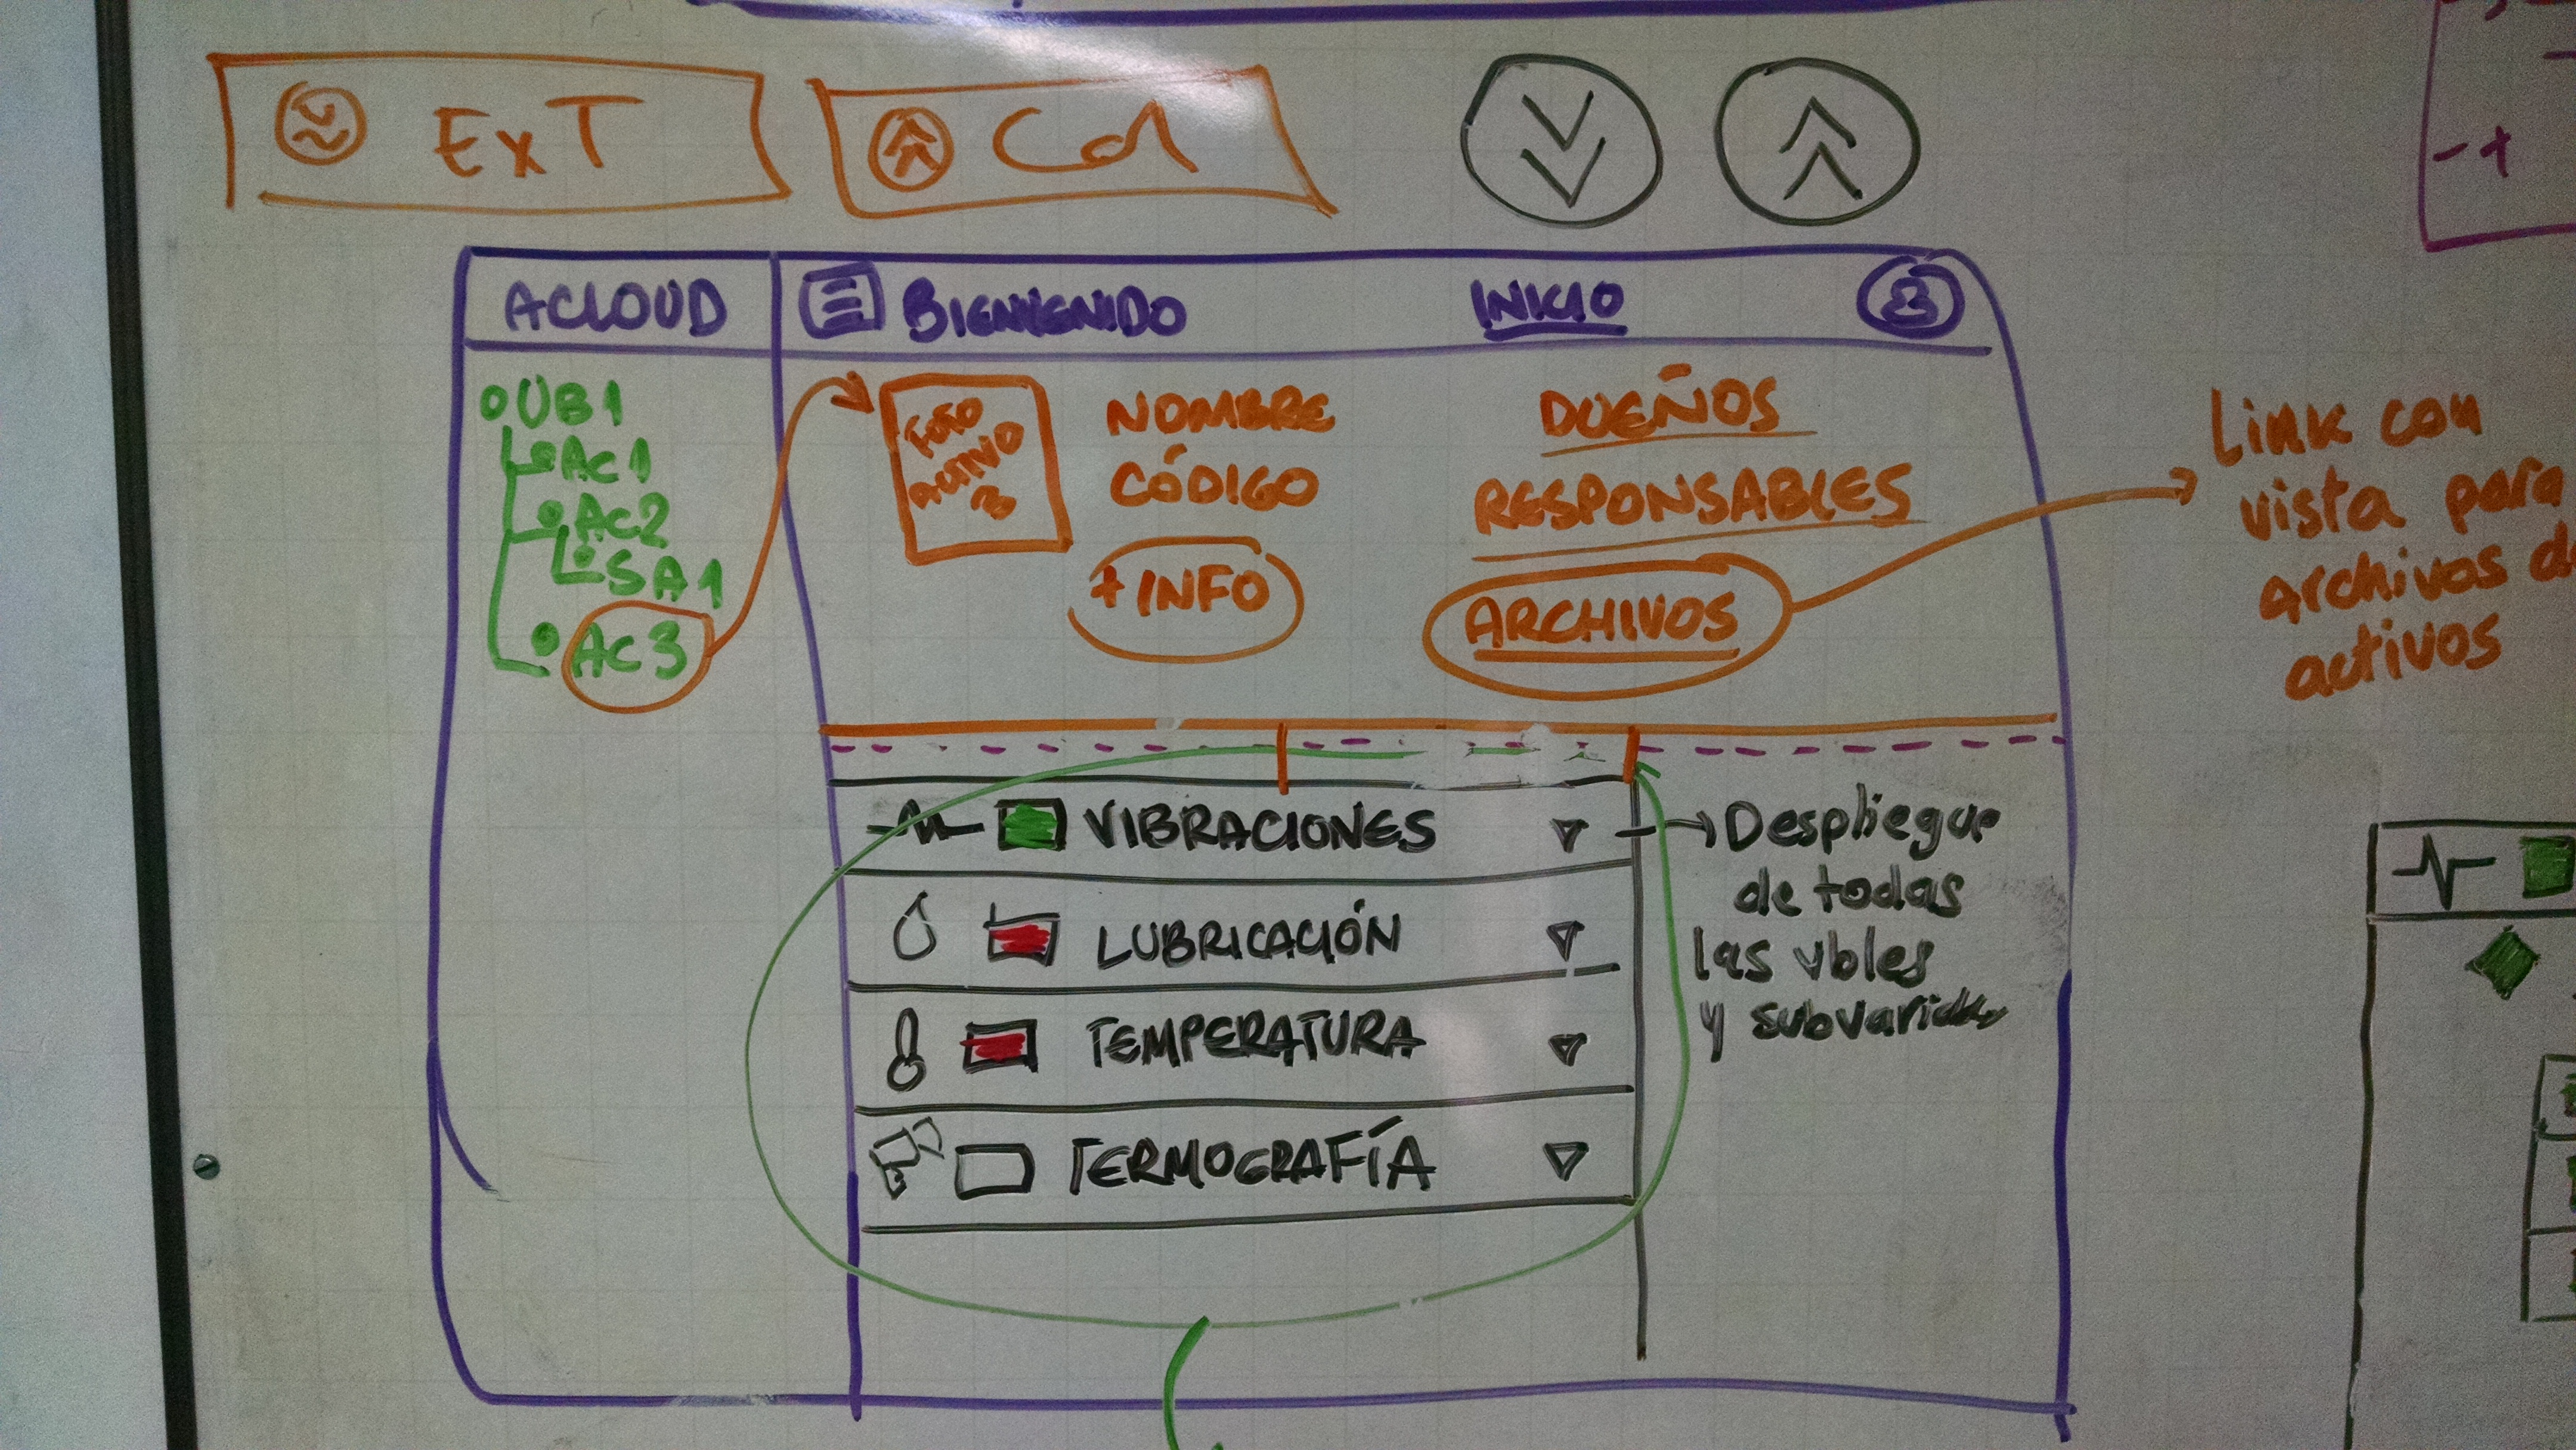 ExT
Col
ACLOUD
BIENVENIDO
INICIO
UB1
Ac1
Ac2
SA1
Ac3
FOTO
ACTIVO
3
NOMBRE
CÓDIGO
+ INFO
DUEÑOS
RESPONSABLES
ARCHIVOS
Link con
vista para
archivos de
activos
VIBRACIONES
LUBRICACIÓN
TEMPERATURA
TERMOGRAFÍA
Despliegue
de todas
las vbles
y
- +